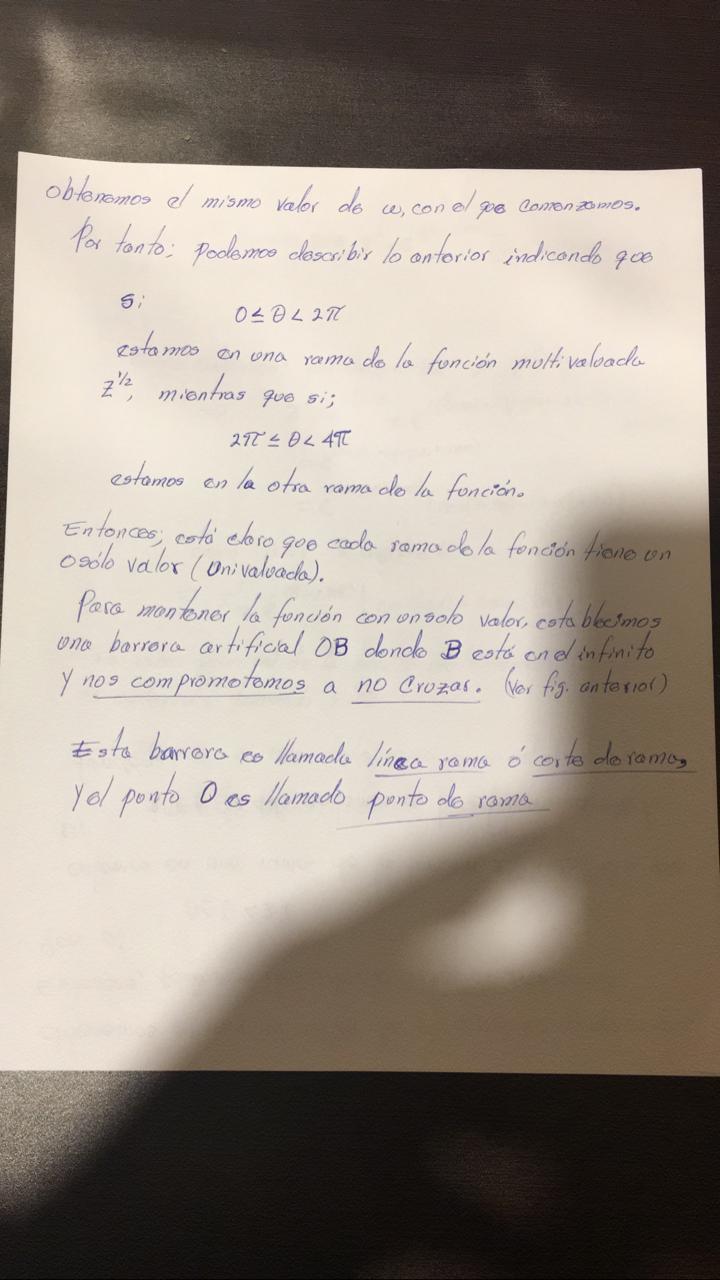 obtenemos el mismo valor de ω, con el que comenzamos.
Por tanto; podemos describir lo anterior indicando que
si 0 ≤ θ < 2π
estamos en una rama de la función multivaluada
z^1/2, mientras que si;
2π ≤ θ < 4π
estamos en la otra rama de la función.
Entonces; está claro que cada rama de la función tiene un
o sólo valor (univaluada).
Para mantener la función con un solo valor, establecimos
una barrera artificial OB donde B está en el infinito
y nos comprometemos a no cruzar. (Ver fig. anterior)
Esta barrera es llamada línea rama ó corte de rama,
y el punto O es llamado punto de rama